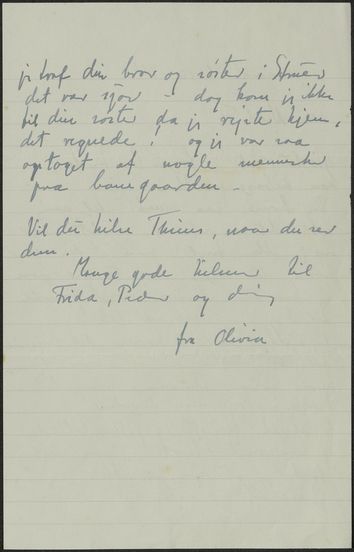 jeg traf din bror og søster i Struer
det var sjov – dog kom jeg ikke
til din søster da jeg rejste hjem,
det regnede, og jeg var saa
optaget af nogle mennesker
paa banegaarden –
Vil du hilse Thius, naar du ser
dem.
Mange gode hilsner til
Frida, Peder og dig
fra Olivia